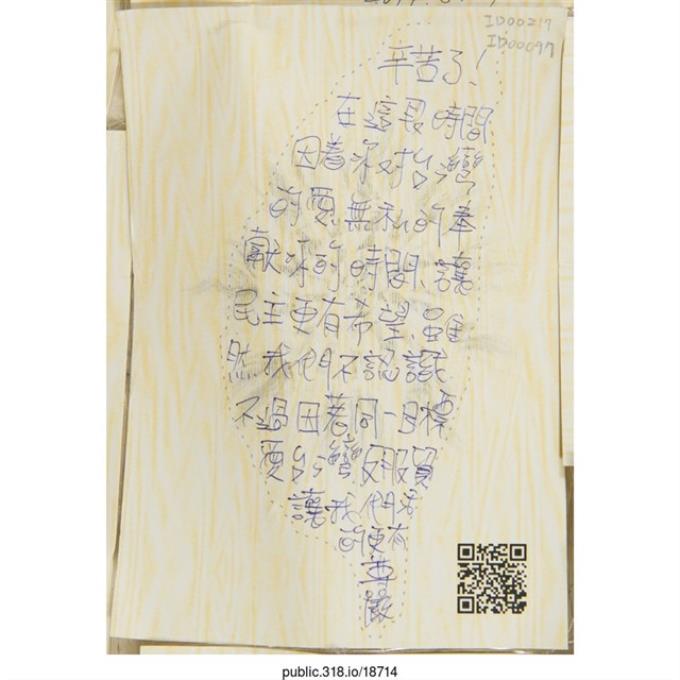 ID00217
ID00097
辛苦了!
在這段時間
因着你對台灣
的愛,無私的奉
獻你的時間,讓
民主更有希望,雖
然我們不認識
不過因著同一目標
愛台灣
讓我們
的更有
尊嚴
public.318.io/18714